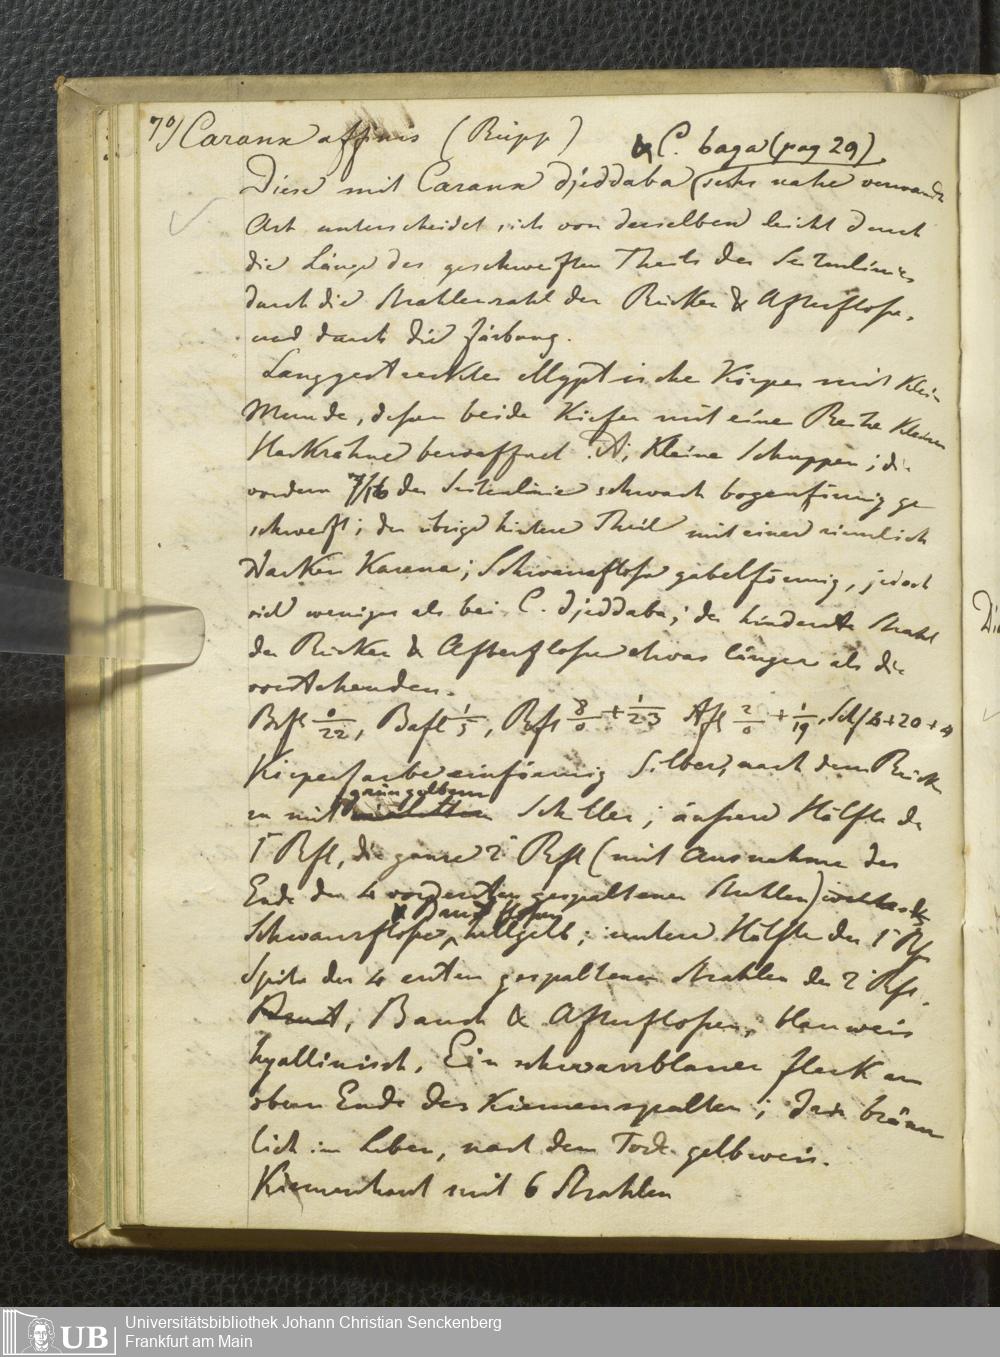 70/ Caranx affinis (Rüpp)
& C. baga (pag 29).
Diese mit Caranx djeddaba (sehr nahe verwandte
Art unterscheidet sich von derselben leicht durch
die Länge des geschweiften Theils der Seitenlinie
durch die Strahlenzahl der Rücken & Afterflosse,
und durch die Färbung.
Langgestreckter elliptische Körper mit klein
Munde, dessen beide Kiefer mit einer Reihe kleiner
Hackzähne bewaffnet; kleine Schuppen; die
vordern 7/16 der Seitenlinie schwach bogenförmig ge
schweift; der übrige hintere Theil mit einer ziemlich
starken Karena; Schwanzflosse gabelförmig, jedoch
viel weniger als bei C. djeddaba; der hinderste Strahl
der Rücken & Afterflosse etwas länger als die
vorstehenden.
Brfl 0/22, Bafl 1/5, Rfl 8/0 + 1/23 Afl 2/0 + 1/19, Schfl 4+20+4
Körperfarbe einförmig Silber, nach dem Rücke
grüngelbem
zu mit Schiller; äussere Hälfte der
1' Rfl, die ganze 2' Rfl (mit Ausnahme des
Ende der 4 vordersten gespaltenen Strahlen)
& Brustflossen
Schwanzflosse hellgelb; untere Hälfte der 1' Rfl
Spitze der 4 ersten gespaltenen Strahlen der 2' Rfl.
Brust, Bauch & Afterflossen, blauweis
hyallinisch. Ein schwarzblauer Fleck am
obern Ende der Kiemenspalten; Iris bräun
lich im Leben, nach dem Tode gelbweis.
Kiemenhaut mit 6 Strahlen
Universitätsbibliothek Johann Christian Senckenberg
UB Frankfurt am Main